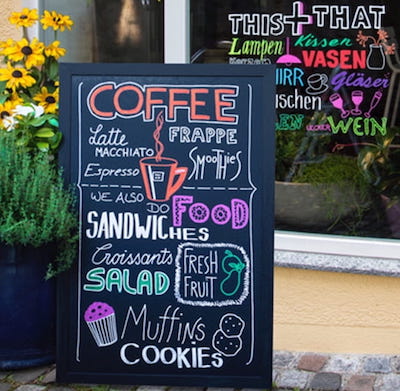 COFFEE
Latte MACCHIATO FRAPPE
Espresso Smoothies
WE ALSO DO FOOD
SANDWICHES
Croissants
SALAD
FRESH FRUIT
Muffins
COOKIES
THIS + THAT
Lampen Kissen
VASEN
Gläser
WEIN